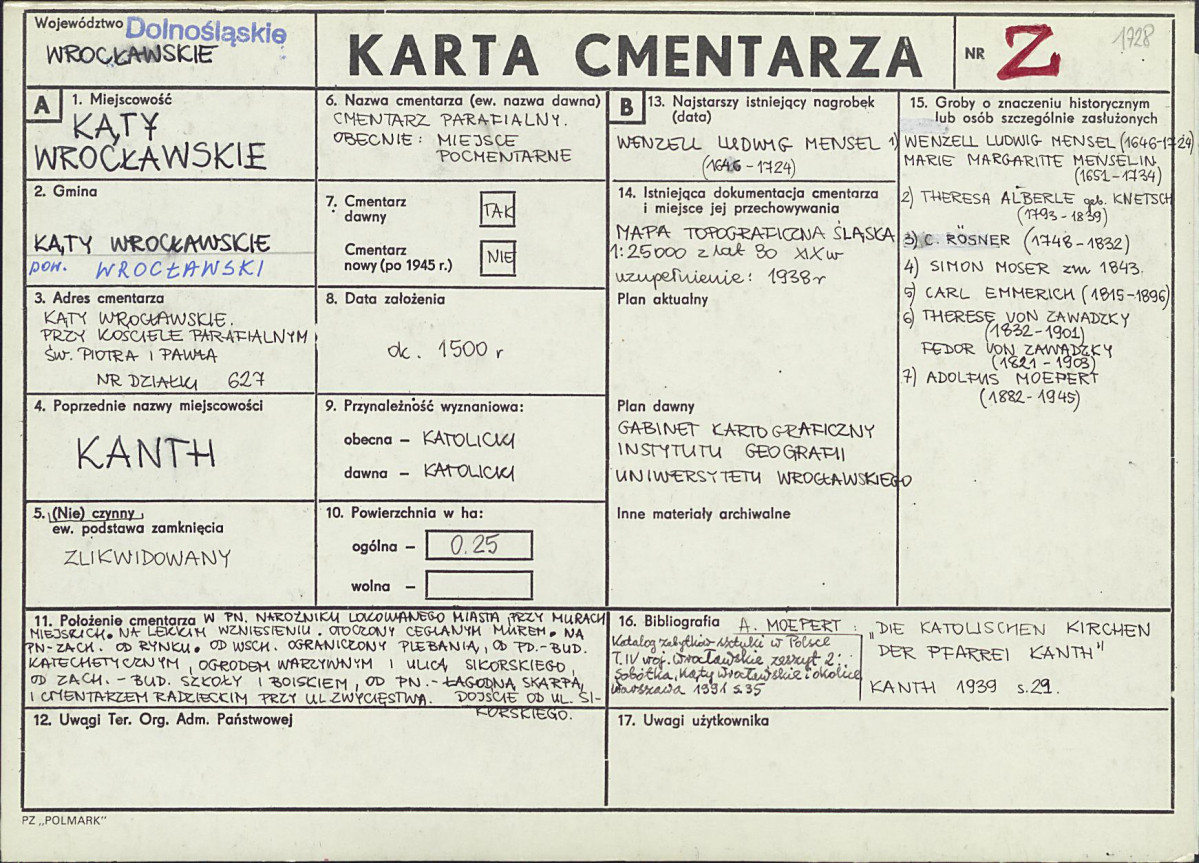 Województwo Dolnośląskie
WROCŁAWSKIE
KARTA CMENTARZA
NR Z
1728
A
1. Miejscowość
KĄTY
WROCŁAWSKIE
2. Gmina
KĄTY WROCŁAWSKIE
pow. WROCŁAWSKI
3. Adres cmentarza
KĄTY WROCŁAWSKIE.
PRZY KOŚCIELE PARAFIALNYM
ŚW. PIOTRA I PAWŁA
NR DZIAŁKI 627
4. Poprzednie nazwy miejscowości
KANTH
5. (Nie) czynny
ew. podstawa zamknięcia
ZLIKWIDOWANY
6. Nazwa cmentarza (ew. nazwa dawna)
CMENTARZ PARAFIALNY.
OBECNIE: MIEJSCE
POCMENTARNE
7. Cmentarz
dawny TAK
Cmentarz
nowy (po 1945 r.) NIE
8. Data założenia
ok. 1500 r
9. Przynależność wyznaniowa:
obecna – KATOLICKI
dawna – KATOLICKI
10. Powierzchnia w ha:
ogólna – 0.25
wolna –
11. Położenie cmentarza W PN. NAROŻNIKU LOKOWANEGO MIASTA PRZY MURACH
MIEJSKICH. NA LEKKIM WZNIESIENIU. OTOCZONY CEGLANYM MUREM. NA
PN-ZACH. OD RYNKU. OD WSCH. OGRANICZONY PLEBANIĄ, OD PD.-BUD.
KATECHETYCZNYM, OGRODEM WARZYWNYM I ULICĄ SIKORSKIEGO,
OD ZACH. - BUD. SZKOŁY I BOISKIEM, OD PN. - ŁAGODNĄ SKARPĄ
I CMENTARZEM RADZIECKIM PRZY UL. ZWYCIĘSTWA. DOJŚCIE OD UL. SI-
KORSKIEGO.
12. Uwagi Ter. Org. Adm. Państwowej
B
13. Najstarszy istniejący nagrobek
(data)
WENZELL LUDWIG MENSEL
(1646 - 1724)
14. Istniejąca dokumentacja cmentarza
i miejsce jej przechowywania
MAPA TOPOGRAFICZNA ŚLĄSKA
1:25000 z lat 80 XIX w
uzupełnienie: 1938 r
Plan aktualny
Plan dawny
GABINET KARTOGRAFICZNY
INSTYTUTU GEOGRAFII
UNIWERSYTETU WROCŁAWSKIEGO
Inne materiały archiwalne
15. Groby o znaczeniu historycznym
lub osób szczególnie zasłużonych
1) WENZELL LUDWIG MENSEL (1646-1724)
MARIE MARGARITTE MENSELIN
(1651-1734)
2) THERESA ALBERLE geb. KNETSCH
(1793-1839)
3) C. RÖSNER (1748-1832)
4) SIMON MOSER zm 1843.
5) CARL EMMERICH (1815-1896)
6) THERESE VON ZAWADZKY
(1832-1901)
FEDOR VON ZAWADZKY
(1821-1903)
7) ADOLFUS MOEPERT
(1882-1945)
16. Bibliografia A. MOEPERT: „DIE KATOLISCHEN KIRCHEN
DER PFARREI KANTH"
KANTH 1939 s.29.
Katalog zabytków sztuki w Polsce
T. IV woj. wrocławskie zeszyt 2:
Sobótka, Kąty Wrocławskie i okolice
Warszawa 1991 s. 35
17. Uwagi użytkownika
PZ „POLMARK"